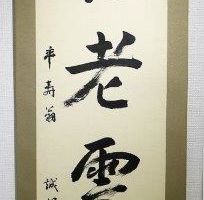 老雲
米寿翁 誠